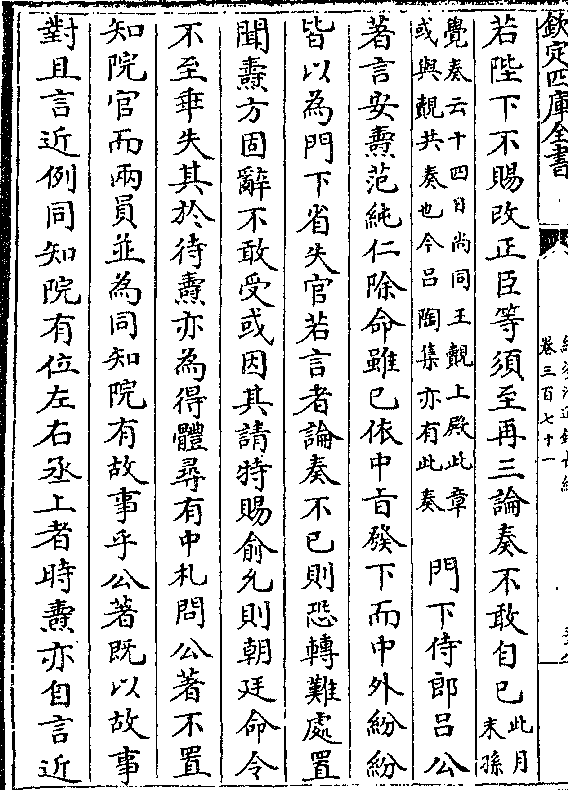 欽定四庫全書
卷三百七十一
若陛下不賜改正臣等須至再三論奏不敢自已此月末孫
覺奏云十四日尚同王覿上殿此章或與覿共奏也今呂陶集亦有此奏 門下侍郎呂公
著言安燾范純仁除命雖已依中旨發下而中外紛紛
皆以為門下省失官若言者論奏不已則恐轉難處置
聞燾方固辭不敢受或因其請特賜俞允則朝廷命令
不至乖失其於待燾亦為得體尋有中札問公著不置
知院官而兩員並為同知院有故事乎公著既以故事
對且言近例同知院有位左右丞上者時燾亦自言近